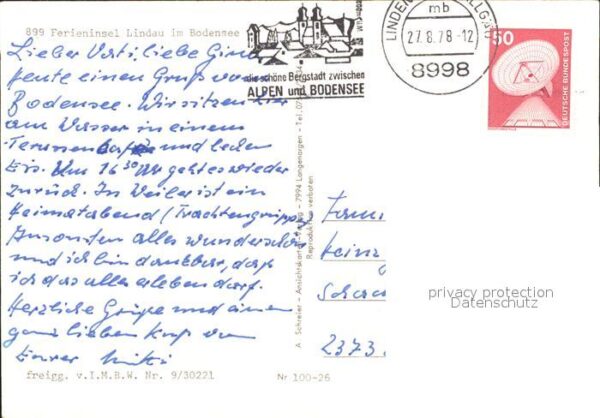 899 Ferieninsel Lindau im Bodensee
Lieber Vati, liebe Gina
heute einen Gruß vom
Bodensee. Wir sitzen hier
am Wasser in einem
und
Eis. Um 16 30 Uhr geht es wieder
zurück. In Weiler ist ein
Heimatabend (Trachtengruppe)
Ansonsten alles wunderschön
und ich bin dankbar, daß
ich das alles erleben darf.
Herzliche Grüße und einen
ganz lieben Kuß von
Eurer
freigg. v.I.M.B.W. Nr. 9/30221
Nr 100-26
A. Schreier - Ansichtskarten-Verlag - 7994 Langenargen - Tel. 07
Reproduktion verboten
die schöne Bergstadt zwischen
ALPEN und BODENSEE
LINDENBERG ALLGÄU
mb
27.8.78-12
8998
50
DEUTSCHE BUNDESPOST
Fami
Heinz
2373
privacy protection
Datenschutz